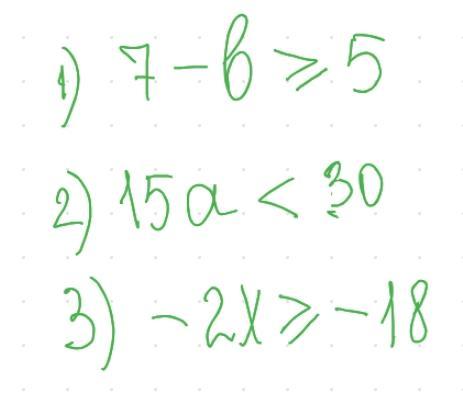 1) 7 - b ⩾ 5
2) 15a < 30
3) -2x ⩾ -18